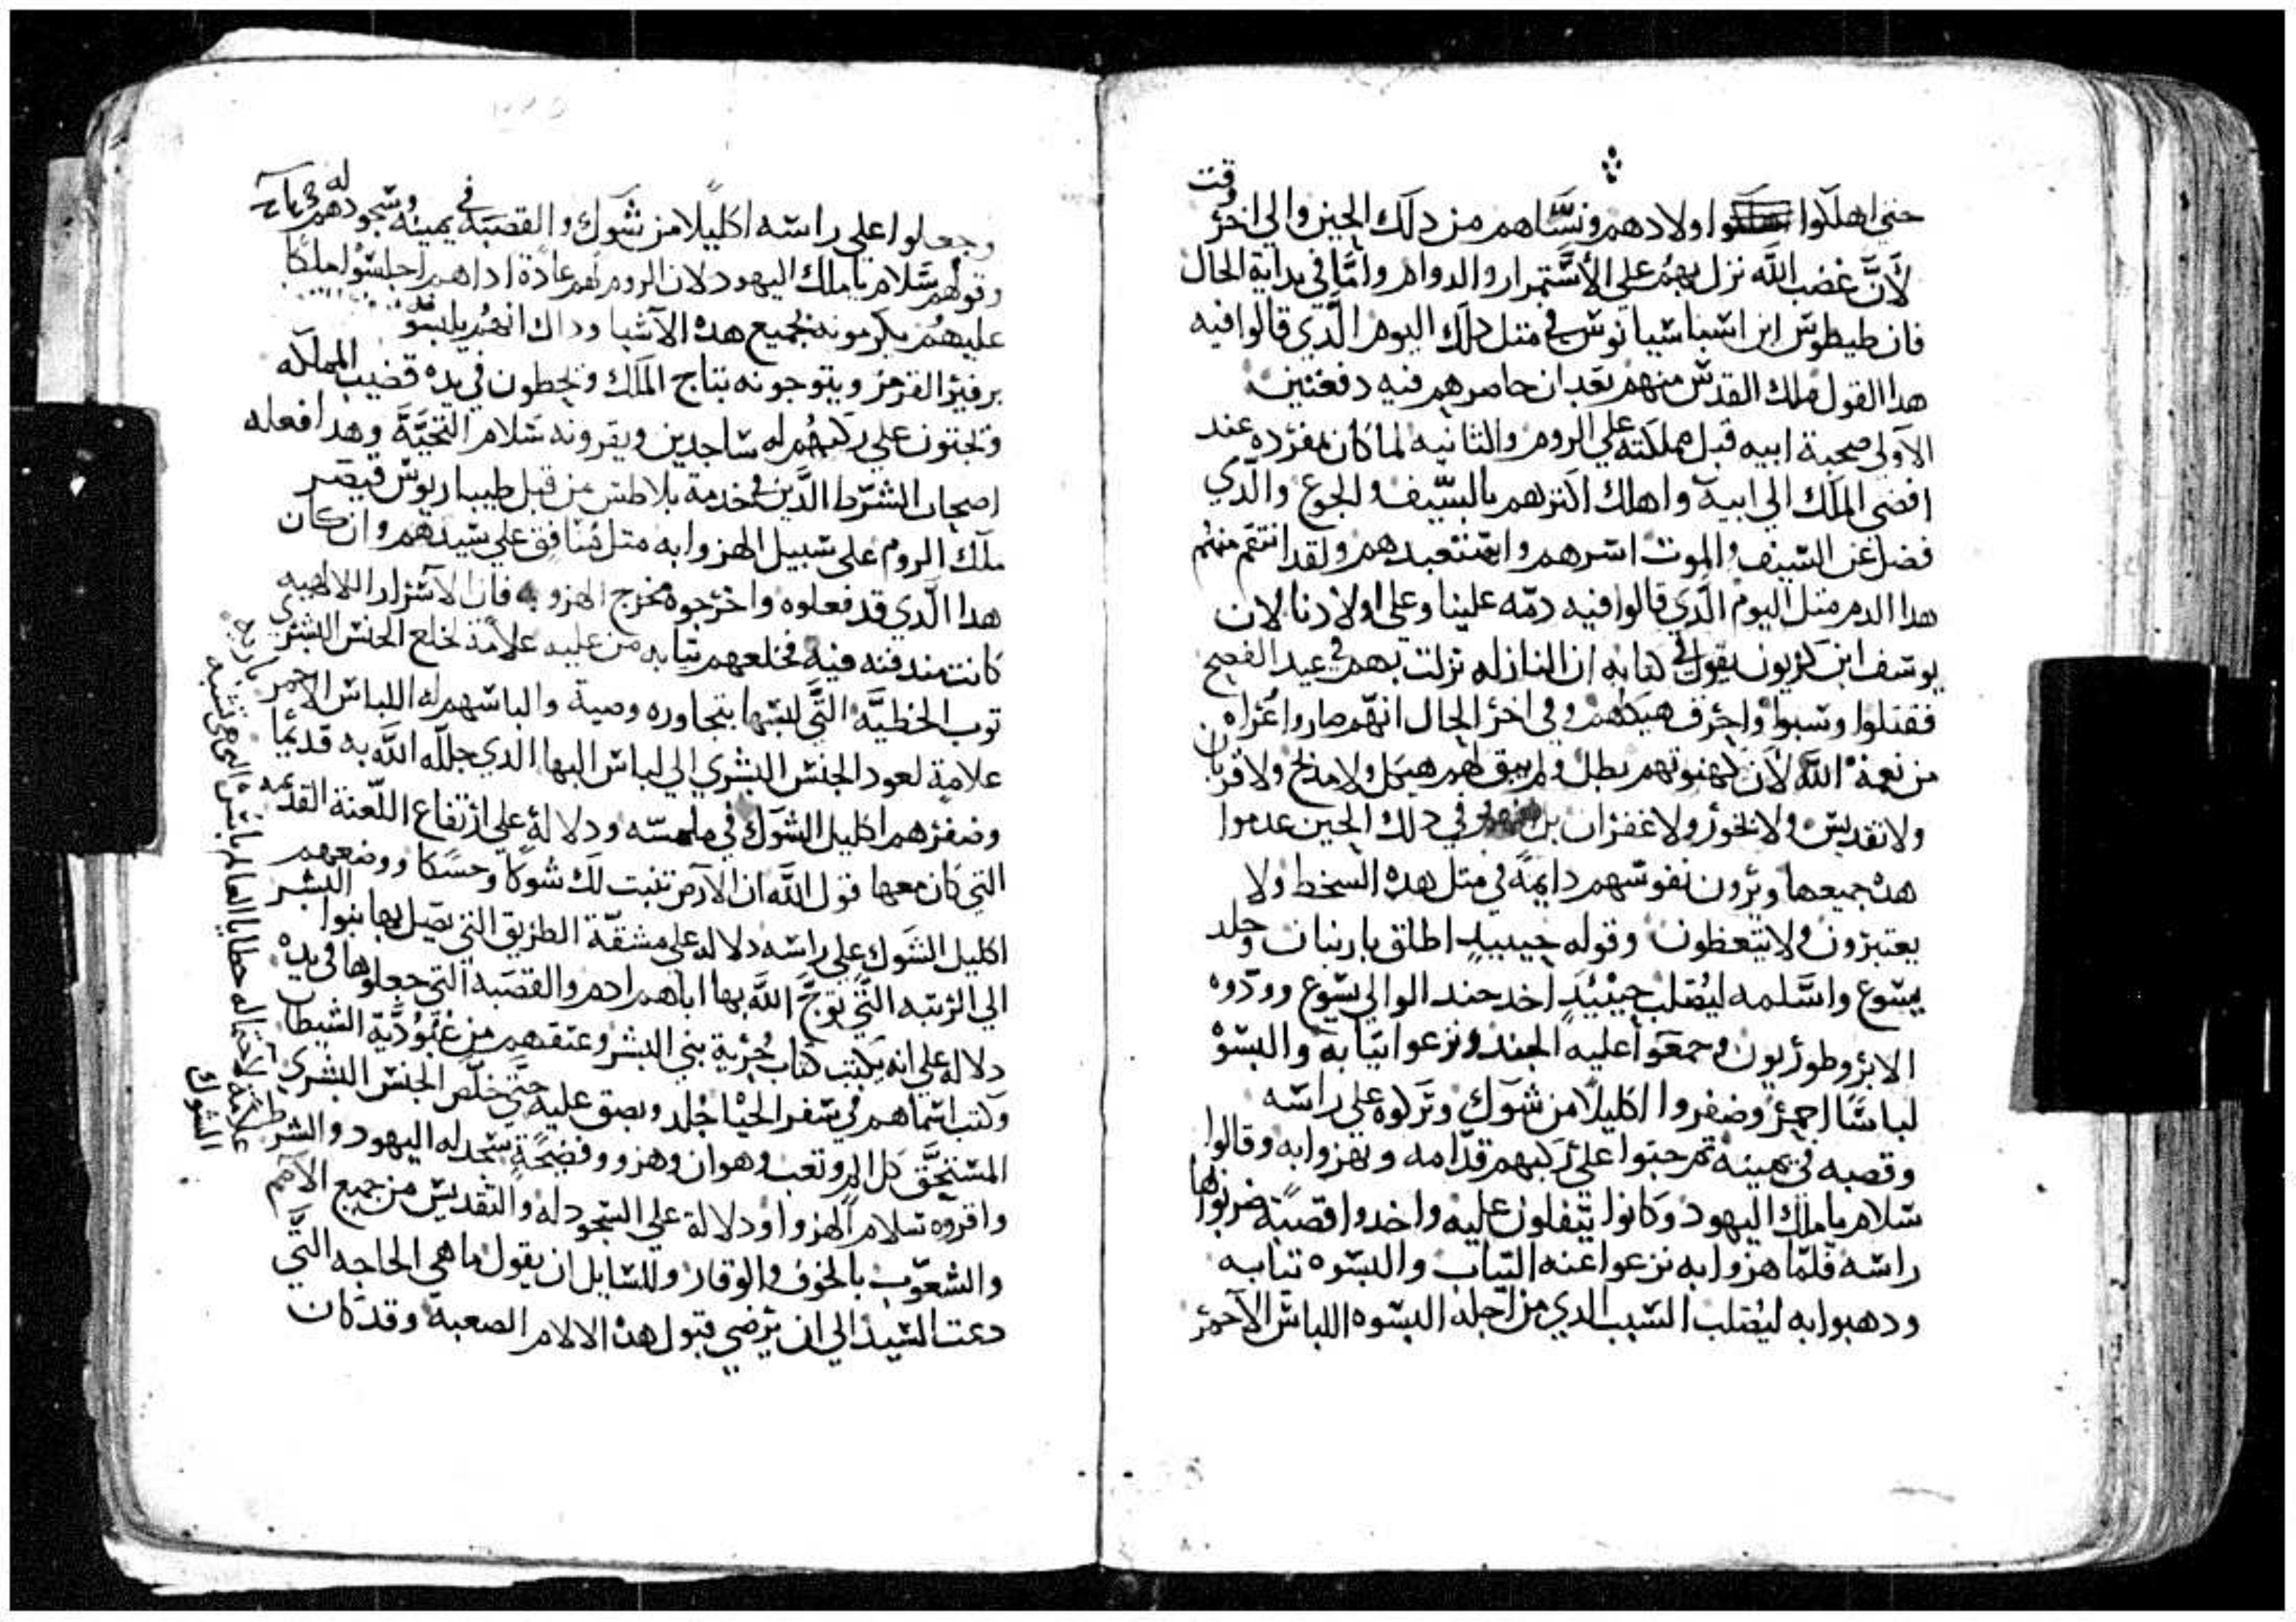 حتي اهلكوا اولادهم ونسّاهم من دلك الحين والي اخر وقت
لأنّ غضب الله نزل بهم علي الأستمرار والدوام وامّا في بداية الحال
فان طيطوس ابن اشباشيانوس في متل دلك اليوم الّدي قالوا فيه
هدا القول ملك القدس منهم بعد ان حاصرهم فيه دفعتين
الآولي صحبة ابيه قبل مملكته علي الروم والتانيه لما كان مفرده عند
افضي الملك الي ابيه واهلك اكترهم بالسّيف والجوع والّدي
فضل عن السّيف والموت اسرهم واستعبدهم ولقد انتقم منهم
هدا الدم متل اليوم الّدي قالوا فيه دمّه علينا وعلي اولادنا لان
يوسف ابن كريون يقول في كتابه ان النازله نزلت بهم في عيد الفصح
فقتلوا وسبوا واحرق هيكلهم وفي اخر الحال انهّم صاروا عُراه
من نعمة اللّه لأن كهنوتهم بطل ولم يبق لهم هيكل ولا مدبح ولا قربان
ولا تقديس ولا بخور ولا غفران بل في دلك الحين عدموا
هده جميعها ويرون نفوسهم دايمةً في متل هده السخط ولا
يعتبرون ولا يتعظون وقوله حينيدٍ اطلق باربنان وجلد
يسوع واسّلمه ليُصلب حينيُدٍ اخد جند الوالي يسوع وودّوه
الابروطوريون وجمعوا عليه الجند ونزعوا تيابه والبسوْ
لباسًا احمر وضفروا اكليلًا من شوك وتركوه علي راسه
وقصبه في يمينه تم حبتوا علي ركبهم قدّامه ونهزوا به وقالوا
سلام يا ملك اليهود وكانوا يتفلون عليه واخدوا قصبةً ضربوا بها
راسه فلمّا هزوا به نزعوا عنه التياب والبسوه تيابه
ودهبوا به ليُصلب السّبب الدي من اجله البسوه اللباس الآحمر
وجعلوا علي راسه اكليلًا من شوك والقصبة في يمينه وسجودهم له
وقولهم سلام يا ملك اليهود لان الروم لهم عادة ادا هم اجلسوا ملكًا
عليهم يكرمونه بجميع هده الآشيا وداك انهم يلبسوْ
برفير القرمز ويتوجونه بتاج الملك ويحطون في يده قضيب المملكه
ويجتون علي ركبهُم له ساجدين ويقرونه سلام التحيّة وهدا فعله
اصحاب الشرط الّدين في خدمة بلاطس من قبل طيباريوس قيصر
ملك الروم علي سبيل الهزوا به متل منافق علي سيدهم وان كان
هدا الّدي قد فعلوه واخرجوه مخرج الهزو به فان الآسرار الالاهيه
كانت مندفنه فيه فخلعهم تيابه من عليه علامة لخلع الجنس البشري
توب الخطيّة التّي لبسها بتجاوره وصية والباسهم له اللباس الاحمر
علامةٍ لعود الجنس البشري الي لباس البها الدي جللّه اللّه به قديمًا
وضفرهم اكليل الشوك في ملمسّه ودلالة علي ارتفاع اللّعنة القديمه
التي كان معها قول اللّه ان الآرض تنبت لك شوكًا وحسكًا ووضعهم
اكليل الشوك علي راسه دلاله علي مشقّة الطريق التي يصل بها بنوا البشر
الي الرتبه التّي توجّ اللّه بها اباهم ادم والقصبه التي جعلوها في يده
دلاله علي انه يكتب كتاب حُرية بني البشر وعتقهم من عبُوديّة الشيطان
وكتب اسماهم في سفر الحيْاه جُلد وبصق عليه حتّي خلّص الجنس البشري
المستحقّ كل الم وتعب وهوان وهزو وفضيحةٍ سجد له اليهود والشرط
واقروه سلام الهزوا ودلالة علي السجود له والتقديس من جميع الآمم
والشعوّب بالخوف والوقار وللسّايل ان يقول ما هي الحاجه التّي
دعت السّيد الي ان يرضي قبول هده الالام الصعبة وقد كان
علامة لاحتماله خطايا العالم باسّ التي هي تشبه
الشوك